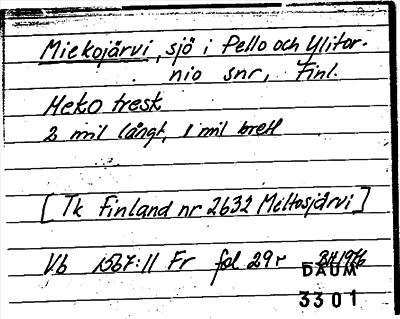 Miekojärvi, sjö i Pello och Ylitor-
nio snr, Finl.
Meko tresk
2 mil långt, 1 mil brett
[Tk Finland nr 2632 Meltosjärvi]
Vb 1567:11 Fr fol 29r
DAUM
3301